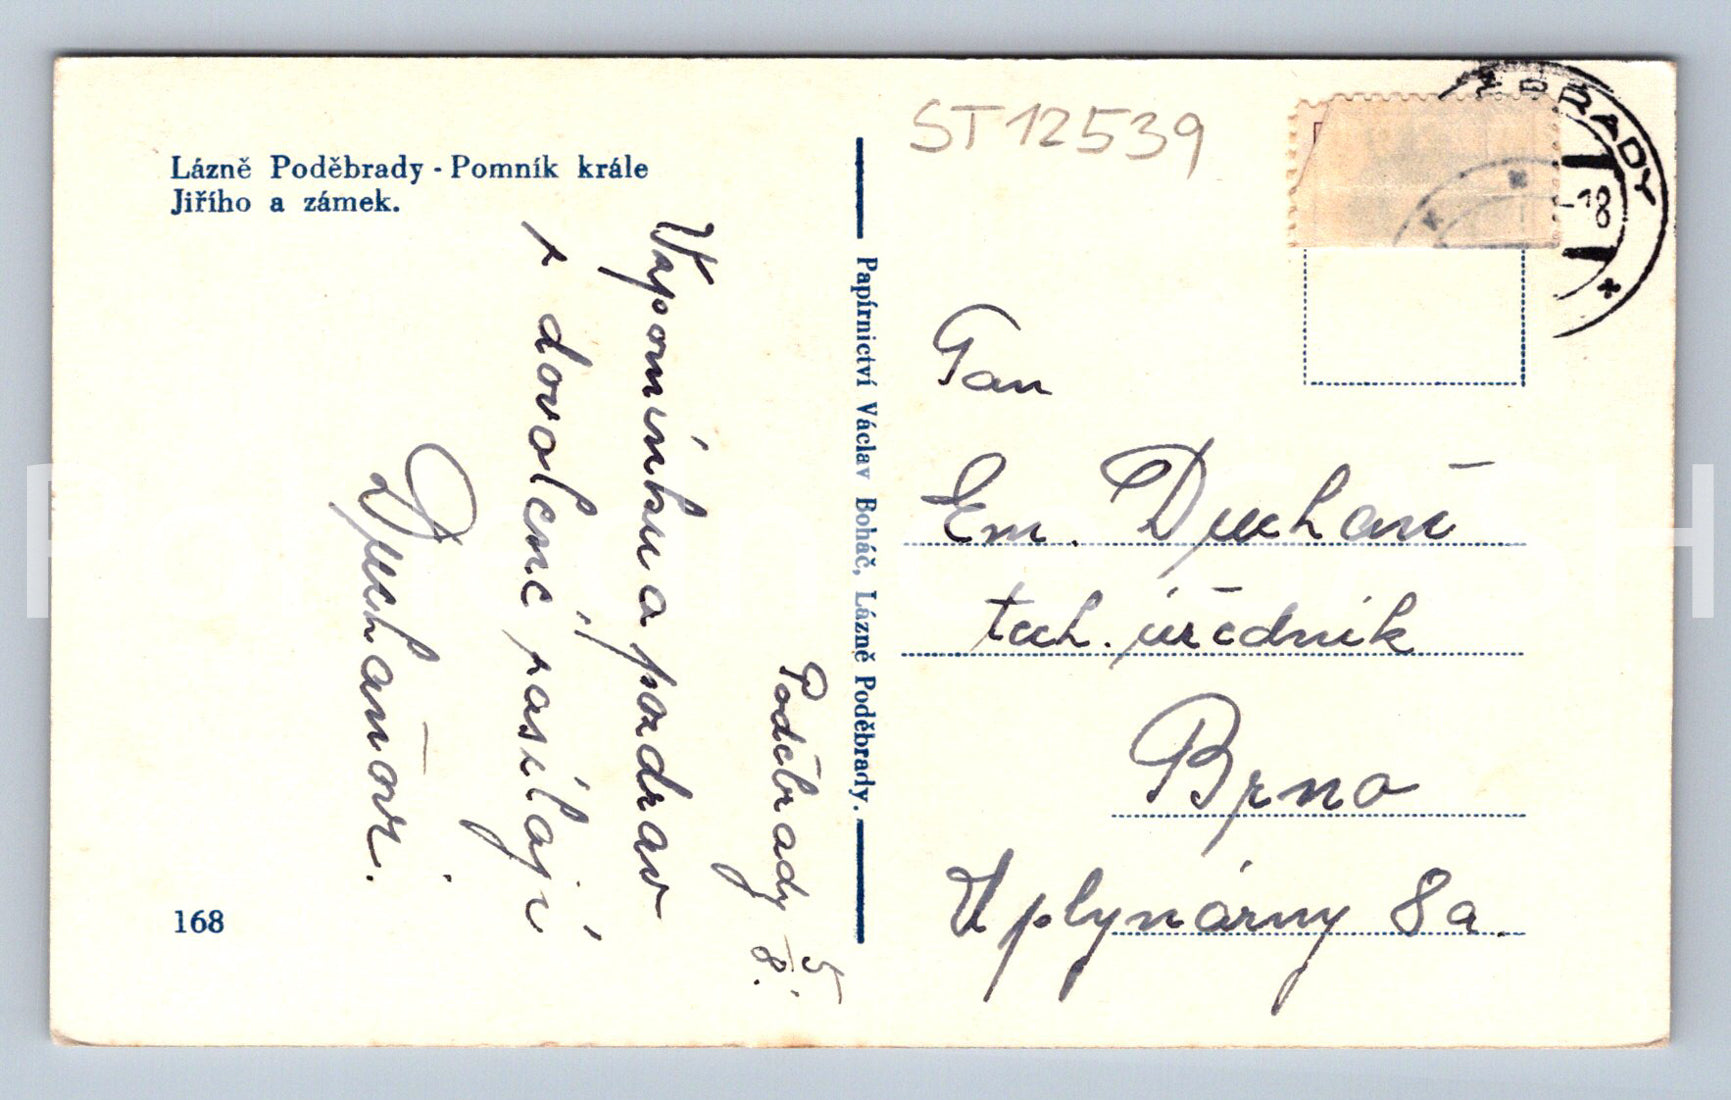 Lázně Poděbrady - Pomník krále
Jiřího a zámek.
ST12539
Poděbrady 5/8.
Vzpomínku a pozdrav
z dovolené zasílají
Duchaňovi.
168
Papírnictví Václav Boháč, Lázně Poděbrady.
Pan
Em. Duchaň
tech. úředník
Brno
U plynárny 8a.
-18